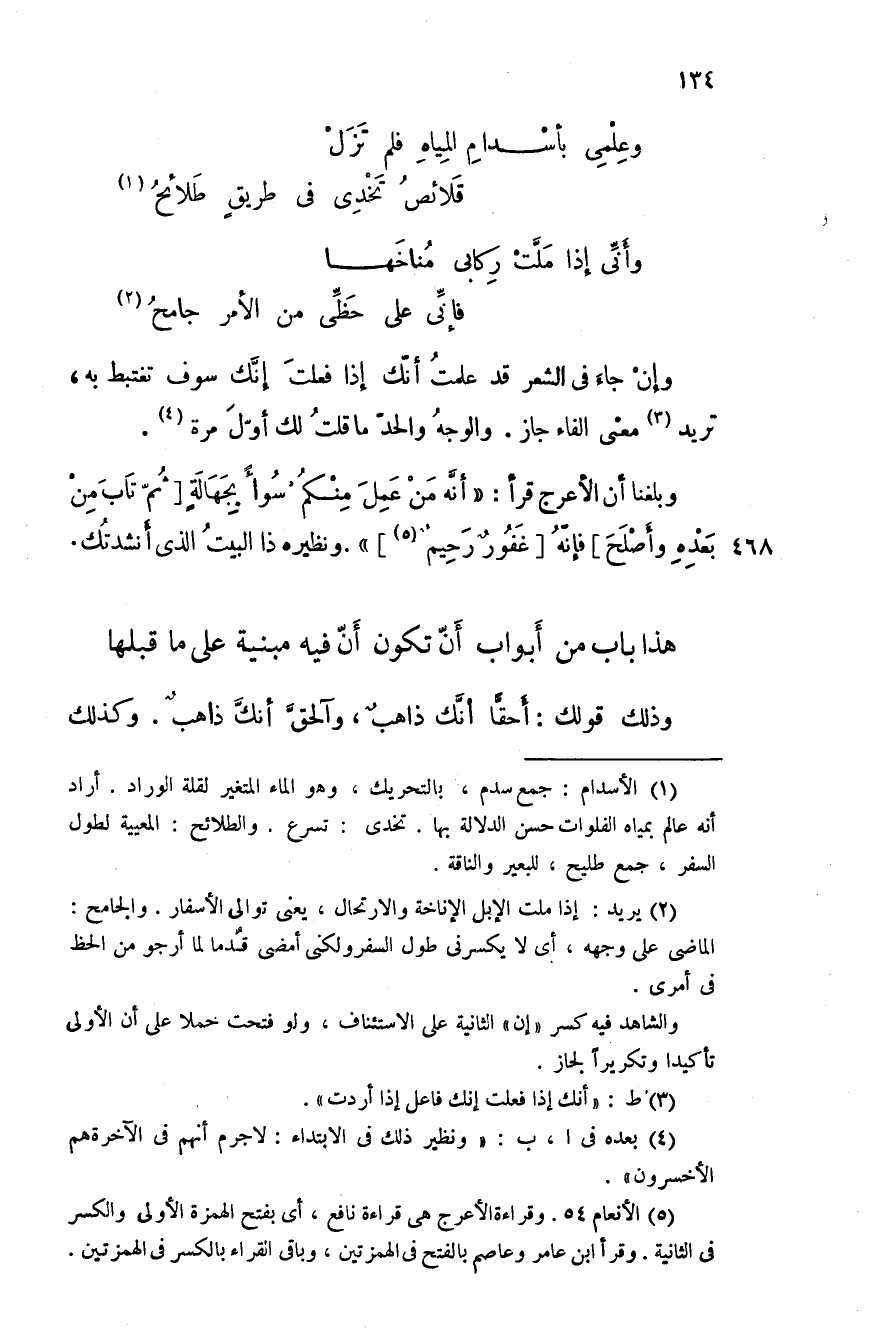 ١٣٤
وعِلْمِى بأسْــدامِ المِياهِ فلم تَزَلْ
قَلائصُ تَخْدِى فى طريقٍ طَلائحُ (١)
وأَنِّى إذا مَلَّتْ رِكابى مُناخَهــا
فإنِّى على حَظِّى من الأمر جامحُ (٢)
وإنْ جاءَ فى الشعر قد علمتُ أنّك إذا فعلتَ إنَّك سوف تغتبط به،
تريد (٣) معنى الفاء جاز . والوجهُ والحدّ ما قلتُ لك أوّلَ مرة (٤) .
وبلغنا أن الأعرج قرأ : « أنَّه مَنْ عَمِلَ مِنْكُمْ سُوأً بِجَهَالَةٍ [ ثُمّ تَابَ مِنْ
٤٦٨ بَعْدِهِ وأَصْلَحَ ] فإنَّهُ [ غَفُورٌ رَحِيمٌ (٥) ] » . ونظيره ذا البيتُ الذى أنشدتُك .
هذا باب من أَبواب أَنّ تكون أَنّ فيه مبنية على ما قبلها
وذلك قولك : أَحقًّا أنَّك ذاهبٌ ، وآلحقَّ أنكَّ ذاهبٌ . وكذلك
(١) الأسدام : جمع سدم ، بالتحريك ، وهو الماء المتغير لقلة الوراد . أراد
أنه عالم بمياه الفلوات حسن الدلالة بها . تخدى : تسرع . والطلائح : المعيية لطول
السفر ، جمع طليح ، للبعير والناقة .
(٢) يريد : إذا ملت الإبل الإناخة والارتحال ، يعنى توالى الأسفار . والجامح :
الماضى على وجهه ، أى لا يكسرنى طول السفر ولكنى أمضى قُدما لما أرجو من الحظ
فى أمرى .
والشاهد فيه كسر «إن» الثانية على الاستئناف ، ولو فتحت حملا على أن الأولى
تأكيدا وتكريراً لجاز .
(٣) ط : « أنك إذا فعلت إنك فاعل إذا أردت » .
(٤) بعده فى ا ، ب : « ونظير ذلك فى الابتداء : لاجرم أنهم فى الآخرة هم
الأخسرون » .
(٥) الأنعام ٥٤ . وقراءة الأعرج هى قراءة نافع ، أى بفتح الهمزة الأولى والكسر
فى الثانية . وقرأ ابن عامر وعاصم بالفتح فى الهمزتين ، وباقى القراء بالكسر فى الهمزتين .